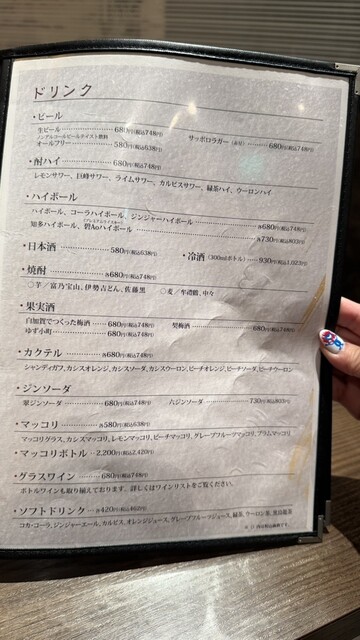 ドリンク
・ビール
生ビール 680円(税込748円)
サッポロラガー(赤星) 680円(税込748円)
ノンアルコールビールテイスト飲料
オールフリー 580円(税込638円)
・酎ハイ 各680円(税込748円)
レモンサワー、巨峰サワー、ライムサワー、カルピスサワー、緑茶ハイ、ウーロンハイ
・ハイボール
ハイボール、コーラハイボール、ジンジャーハイボール 各680円(税込748円)
知多ハイボール、碧Aoハイボール 各730円(税込803円)
・日本酒 580円(税込638円)
・冷酒(300mlボトル) 930円(税込1,023円)
・焼酎 各680円(税込748円)
○芋／富乃宝山、伊勢吉どん、佐藤黒
○麦／中々
・果実酒
白加賀でつくった梅酒 680円(税込748円)
梅酒 680円(税込748円)
ゆず小町 680円(税込748円)
・カクテル 各680円(税込748円)
シャンディガフ、カシスオレンジ、カシスソーダ、カシスウーロン、ピーチオレンジ、ピーチソーダ、ピーチウーロン
・ジンソーダ
翠ジンソーダ 680円(税込748円)
六ジンソーダ 730円(税込803円)
・マッコリ 各580円(税込638円)
マッコリグラス、カシスマッコリ、レモンマッコリ、ピーチマッコリ、グレープフルーツマッコリ、プラムマッコリ
・マッコリボトル 2,200円(税込2,420円)
・グラスワイン 680円(税込748円)
ボトルワインも取り揃えております。詳しくはワインリストをご覧ください。
・ソフトドリンク 各420円(税込462円)
コカ・コーラ、ジンジャーエール、カルピス、オレンジジュース、グレープフルーツジュース、緑茶、ウーロン茶、黒烏龍茶